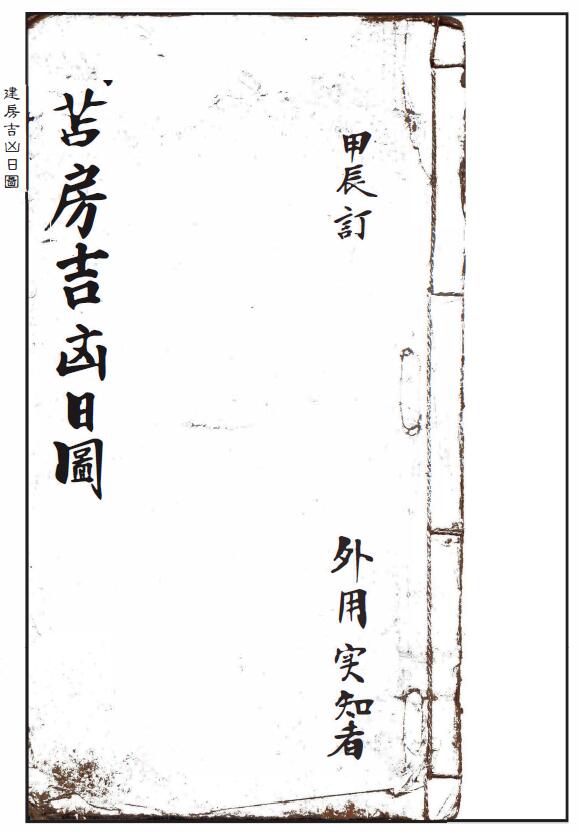 甲辰訂
外用实知者
苫房吉凶日圖
建房吉凶日圖